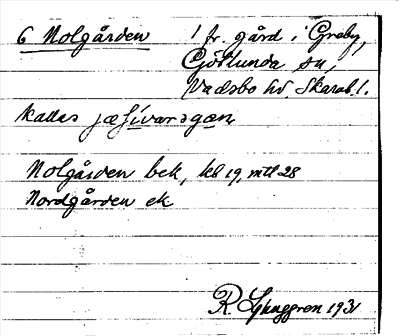 6 Nolgården 1 fr. gård i Greby,
Götlunda sn,
Vadsbo hd. Skarab. l.
Kallas
Nolgården bek, kb 19, mtl 28
Nordgården ek
R. Ljunggren 1931